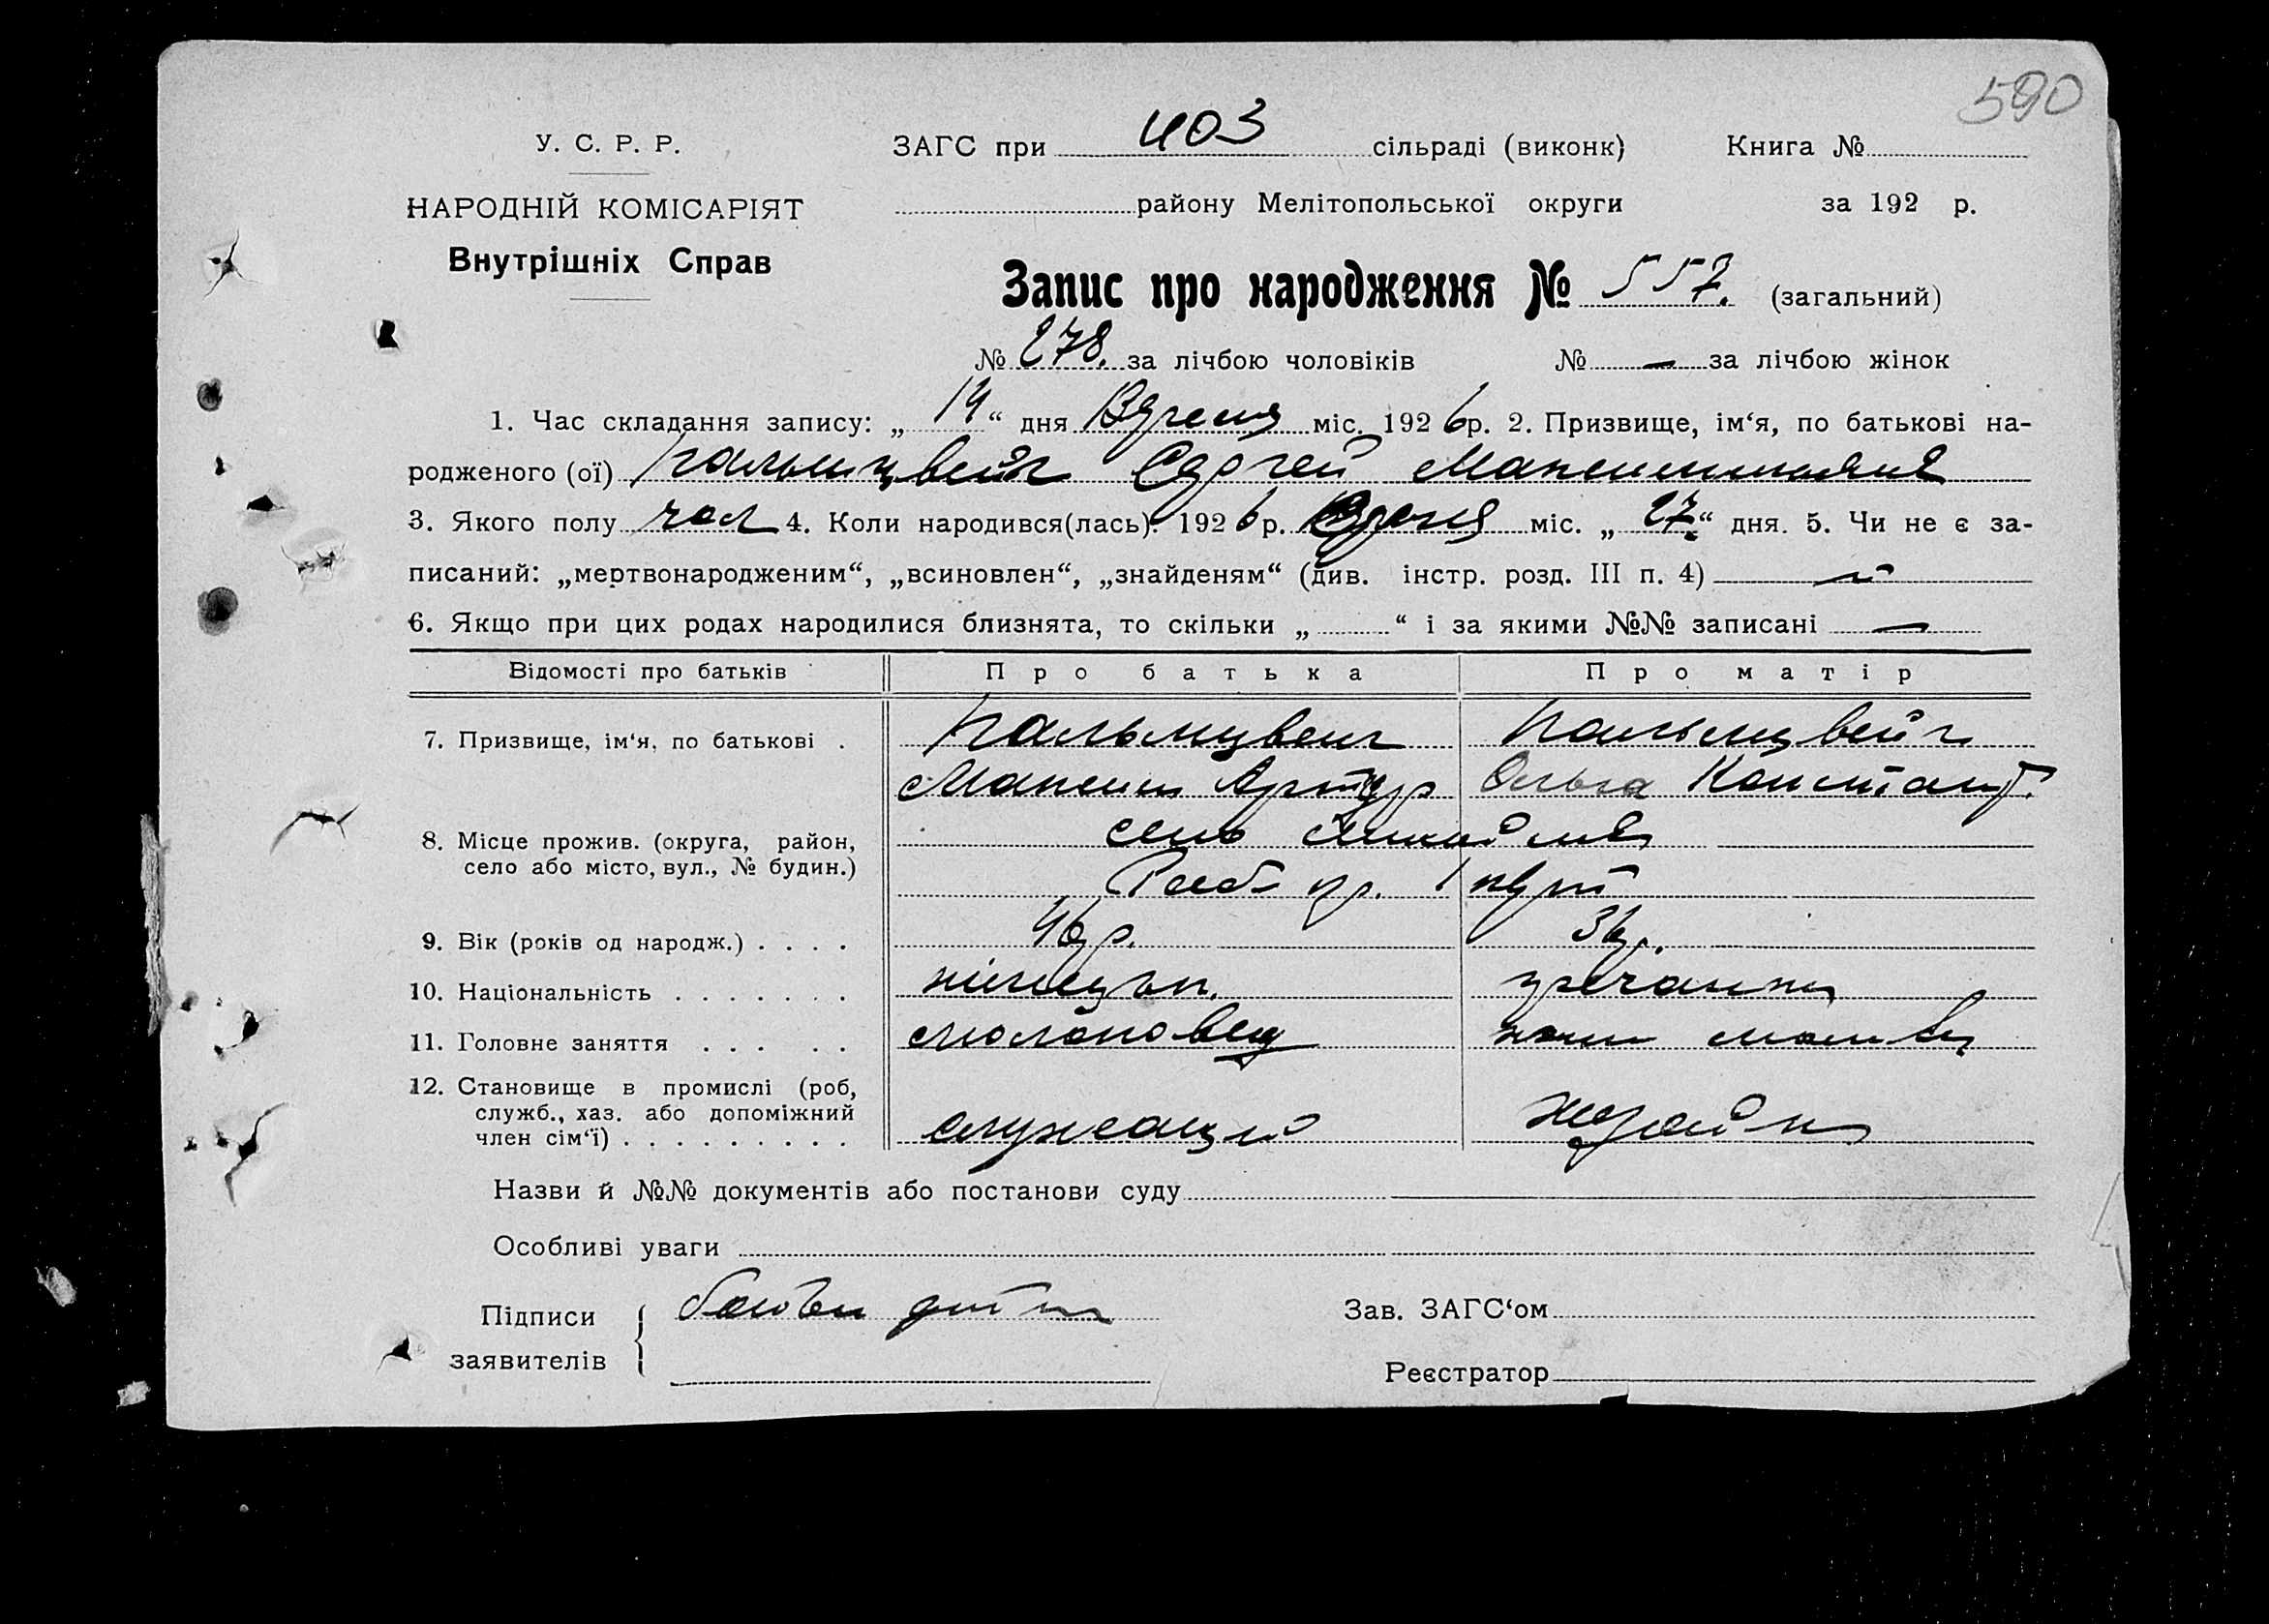 590
У. С. Р. Р. ЗАГС при 403 сільраді (виконк) Книга №
НАРОДНІЙ КОМІСАРІЯТ району Мелітопольської округи за 192 р.
Внутрішніх Справ
Запис про народження № 557. (загальний)
№ 278. за лічбою чоловіків № — за лічбою жінок
1. Час складання запису: „ 14 “ дня міс. 1926 р. 2. Призвище, ім‘я, по батькові на-
родженого (ої) Пальмцвейг Сергей
3. Якого полу чол 4. Коли народився(лась): 1926 р. міс. „ 27 “ дня. 5. Чи не є за-
писаний: „мертвонародженим“, „всиновлен“, „знайденям“ (див. інстр. розд. III п. 4)
6. Якщо при цих родах народилися близнята, то скільки „ “ і за якими №№ записані —
Відомості про батьків Про батька Про матір
7. Призвище, ім‘я, по батькові . Пальмцвейг Пальмцвейг
Максим Артур Ольга Констант.
8. Місце прожив. (округа, район,
село або місто, вул., № будин.)
9. Вік (років од народж.) . . . . 46 р. 36 р.
10. Національність . . . . . . . німецьк. гречанка
11. Головне заняття . . . . .
12. Становище в промислі (роб,
служб., хаз. або допоміжний
член сім‘ї) . . . . . . . . . служащий
Назви й №№ документів або постанови суду
Особливі уваги
Підписи
заявителів
Зав. ЗАГС‘ом
Реєстратор